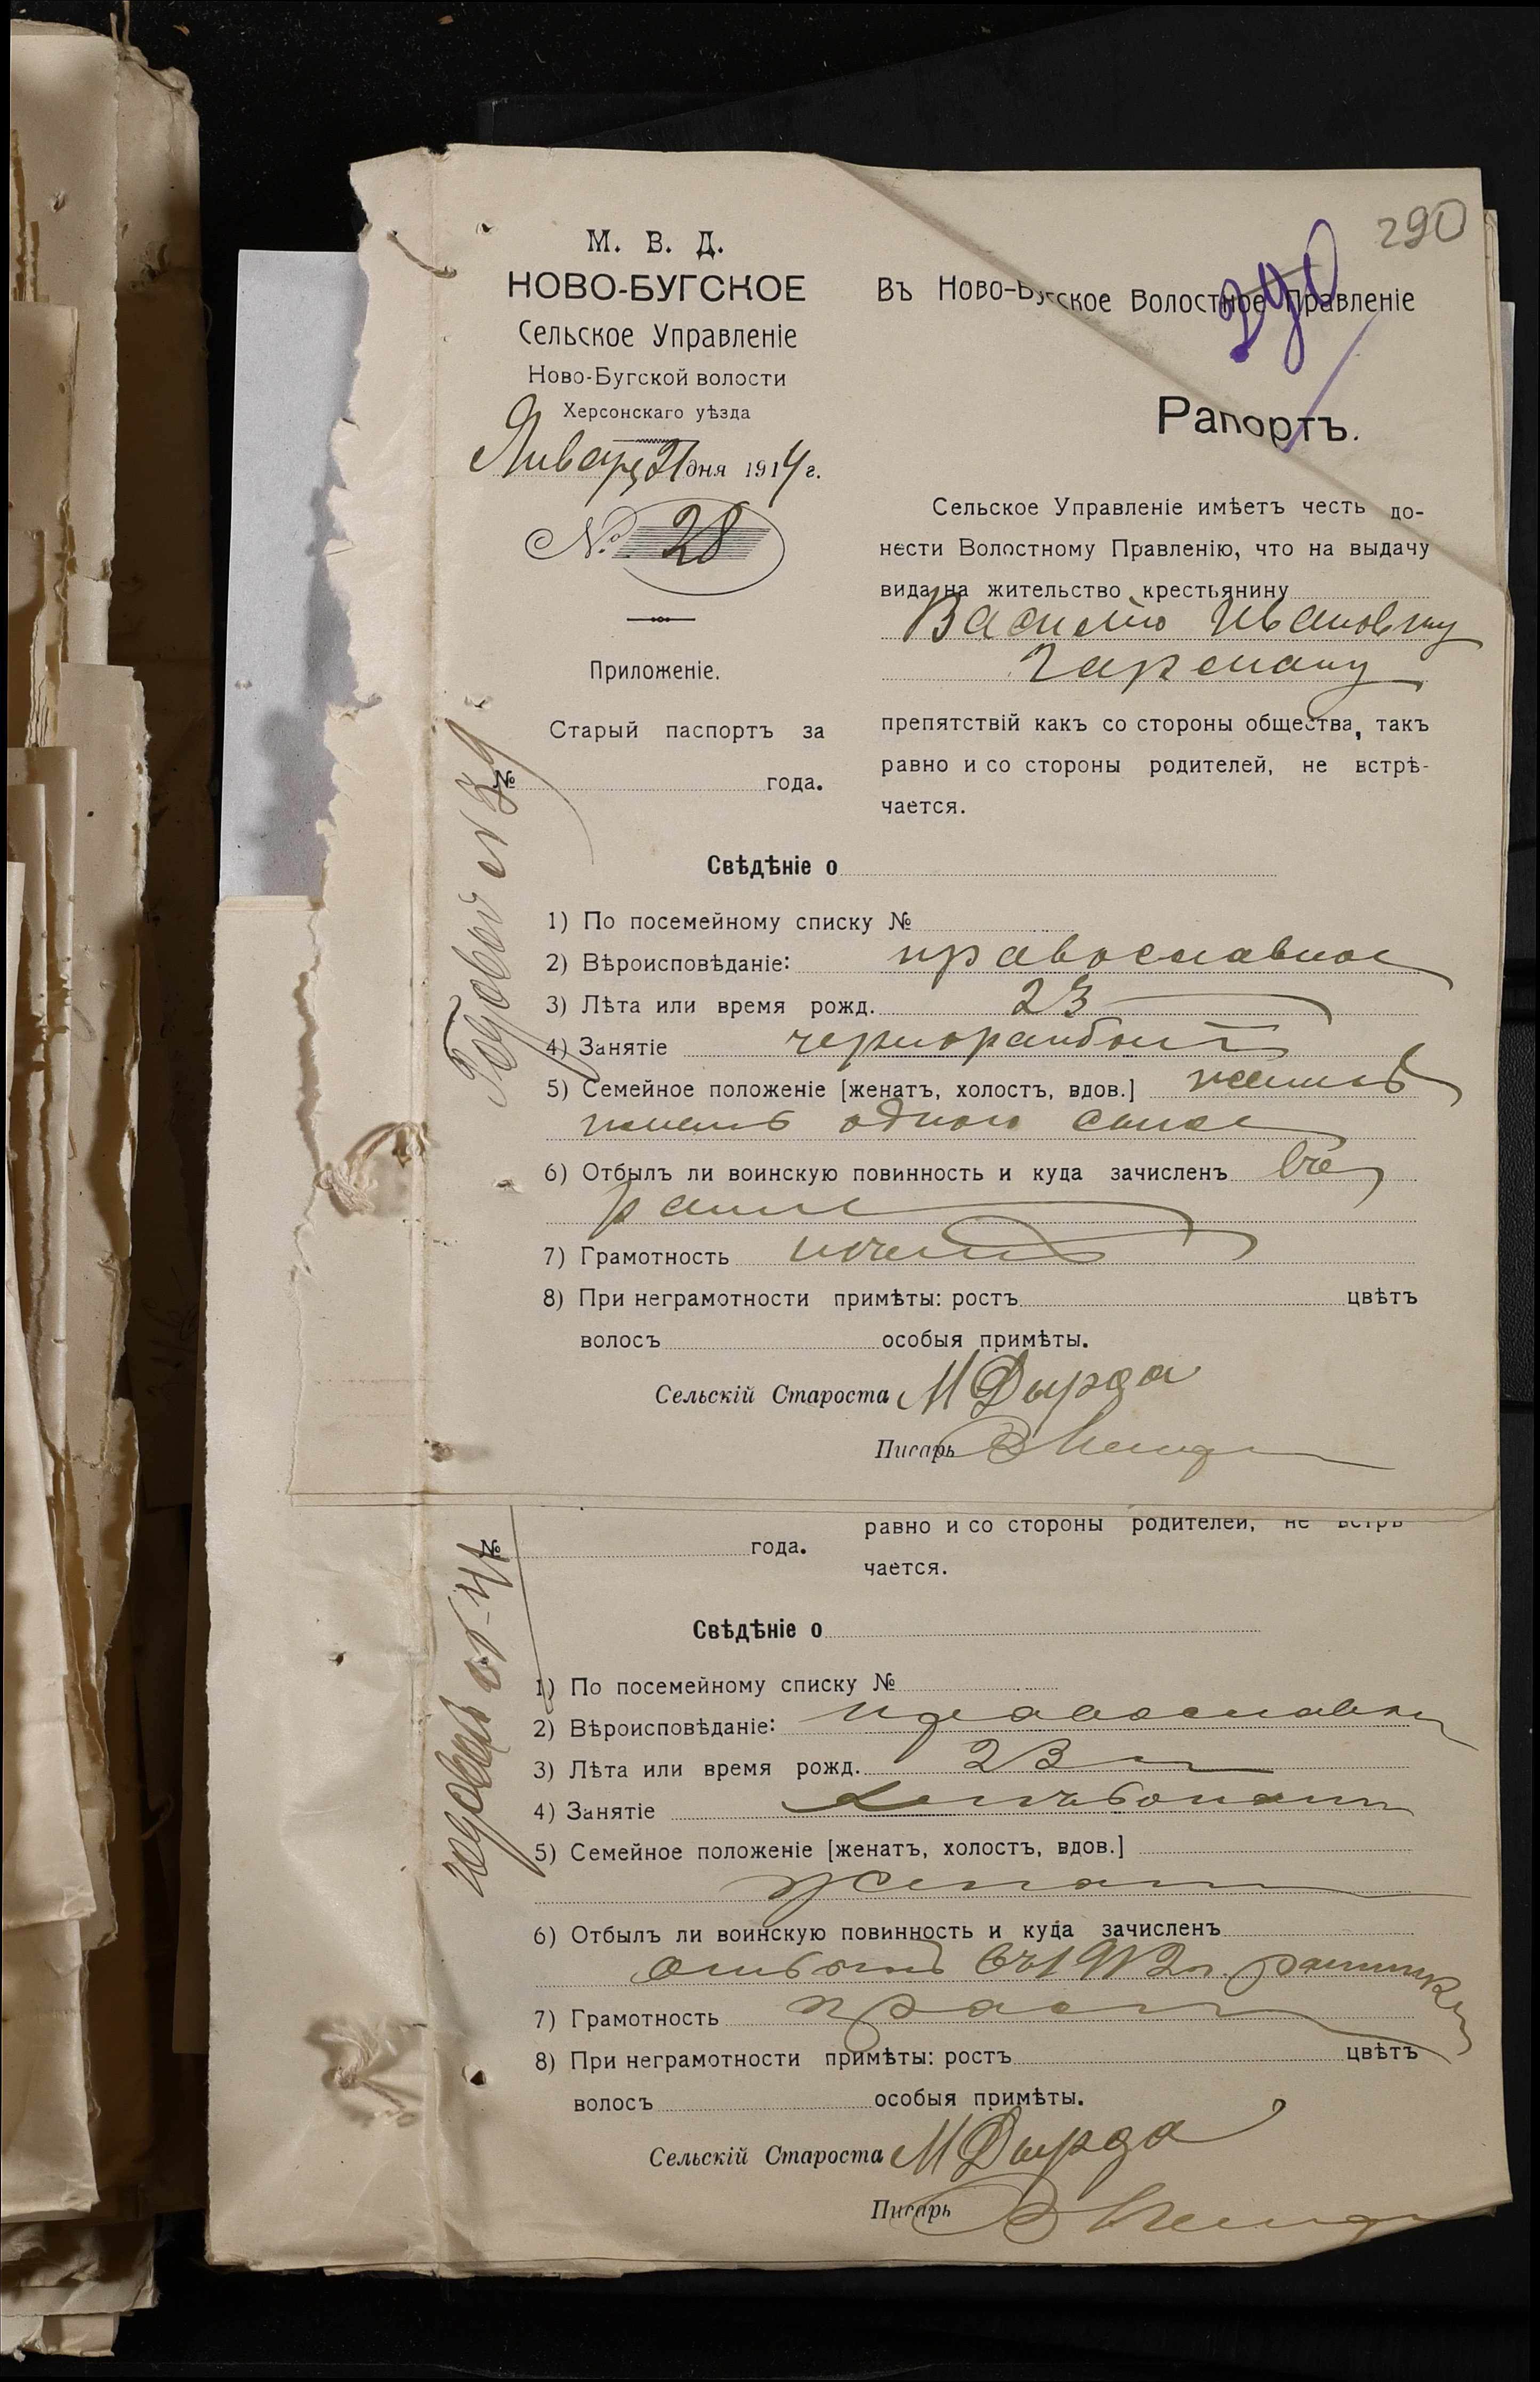 290
290
М. В. Д.
НОВО-БУГСКОЕ
Сельское Управленіе
Ново-Бугской волости
Херсонскаго уѣзда
Января 21 дня 1914 г.
№ 28
Приложеніе.
Старый паспортъ за
№ года.
Годовой № 39
Въ Ново-Бугское Волостное Правленіе
Рапортъ.
Сельское Управленіе имѣетъ честь до-
нести Волостному Правленію, что на выдачу
вида на жительство крестьянину
Василію Иванову
Гарману
препятствій какъ со стороны общества, такъ
равно и со стороны родителей, не встрѣ-
чается.
Свѣдѣніе о
1) По посемейному списку №
2) Вѣроисповѣданіе: православное
3) Лѣта или время рожд. 23
4) Занятіе чернорабоч
5) Семейное положеніе [женатъ, холостъ, вдов.] женатъ
одного сына
6) Отбылъ ли воинскую повинность и куда зачисленъ
7) Грамотность
8) При неграмотности примѣты: ростъ цвѣтъ
волосъ особыя примѣты.
Сельскій Староста М Дырда
Писарь
равно и со стороны родителей, не встрѣ
№ года.
чается.
годовой
Свѣдѣніе о
1) По посемейному списку №
2) Вѣроисповѣданіе: православн
3) Лѣта или время рожд. 23
4) Занятіе хлѣбопаш
5) Семейное положеніе [женатъ, холостъ, вдов.]
женат
6) Отбылъ ли воинскую повинность и куда зачисленъ
отбылъ въ 1912 г. ратник
7) Грамотность
8) При неграмотности примѣты: ростъ цвѣтъ
волосъ особыя примѣты.
Сельскій Староста М Дырда
Писарь